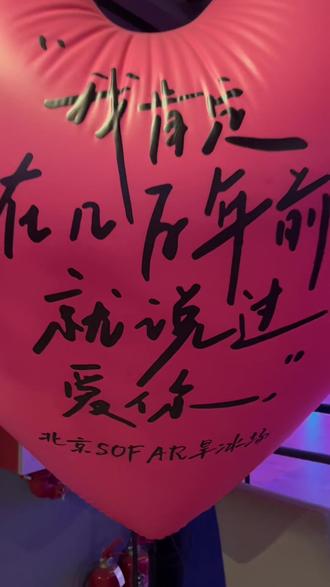 “我肯定
在几百年前
就说过
爱你—.”
北京SOFAR旱冰场